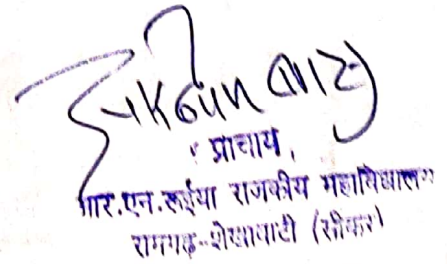 प्राचार्य,
आर.एन.रूईया राजकीय महाविद्यालय
रामगढ़-शेखावाटी (सीकर)